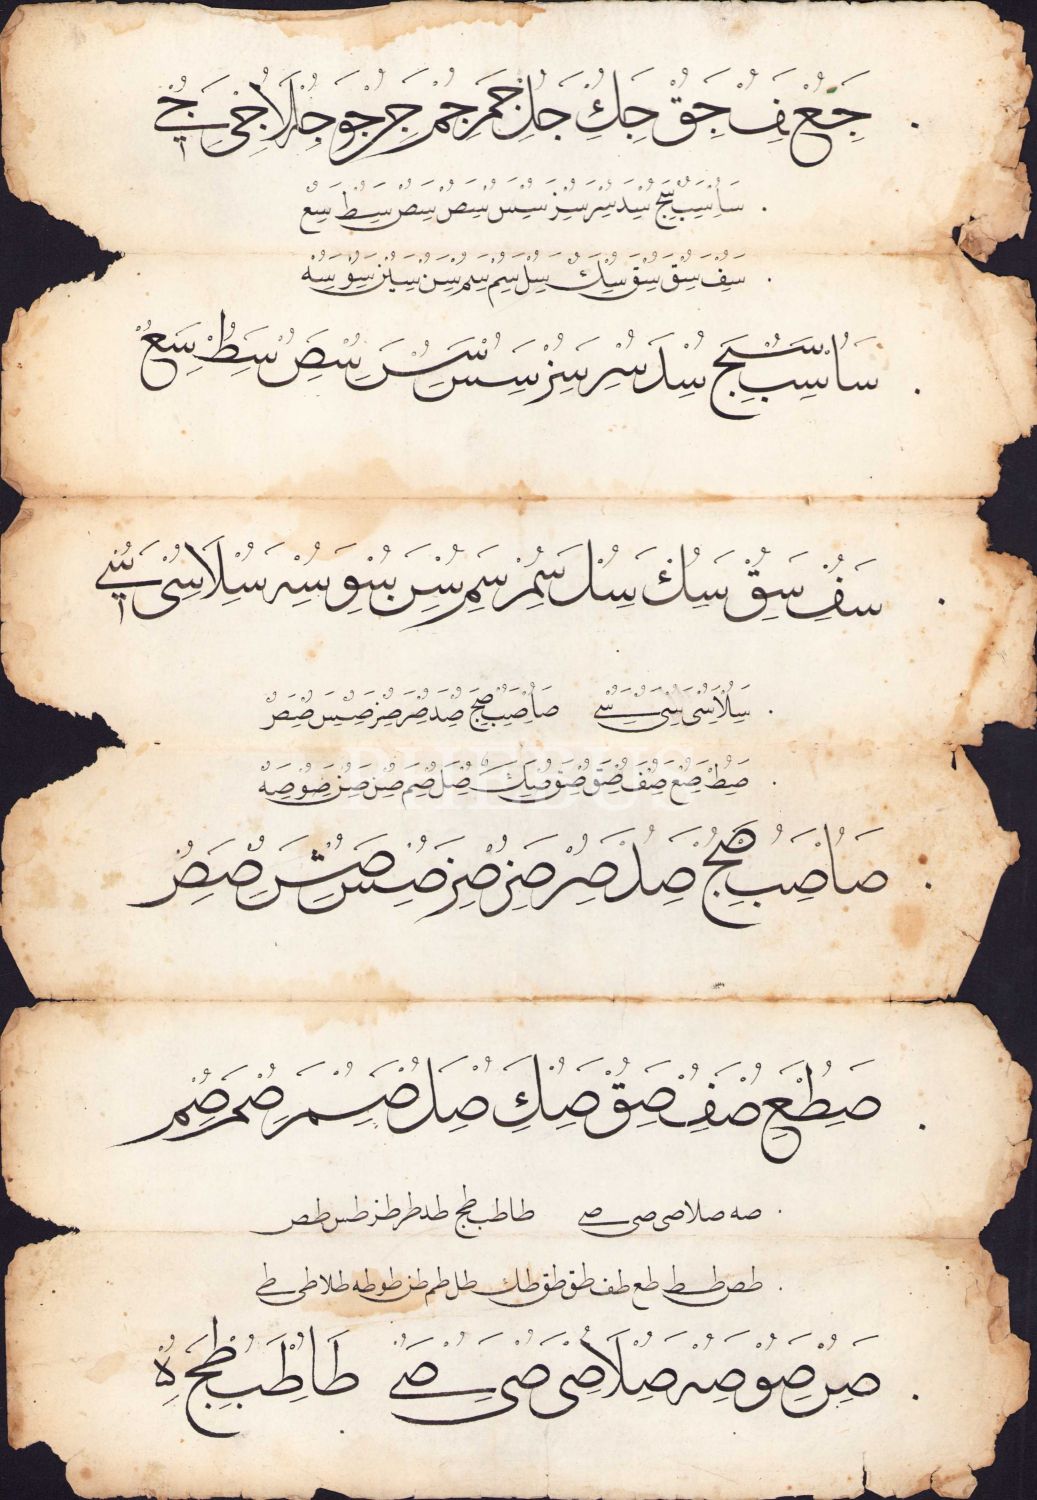 جع جف جق جك جل جمر جم جر جو جه جلا جى جے
سا سب سج سد سر سز سس سص سص سط سع
سف سق سق سك سل سم سمر سن سىن سو سه
سا سب سج سد سر سز سس سس سص سط سع
سف سق سك سل سم سمر سن سو سه سلا سى سے
سلا سى سى سے صا صب صج صد صر صز صس صص
صط صع صف صق صق صك صل صم صن صن صو صه
صا صب صج صد صر صز صز صس صس صص
صط صع صف صق صك صل صمر صمر صم
صه صلا صى صى صے طا طب طج طد طر طز طس طص
طص طط طع طف طق طق طك طل طم طن طو طه طلا طى طے
صن صو صه صلا صى صى صے طا طب طج ه